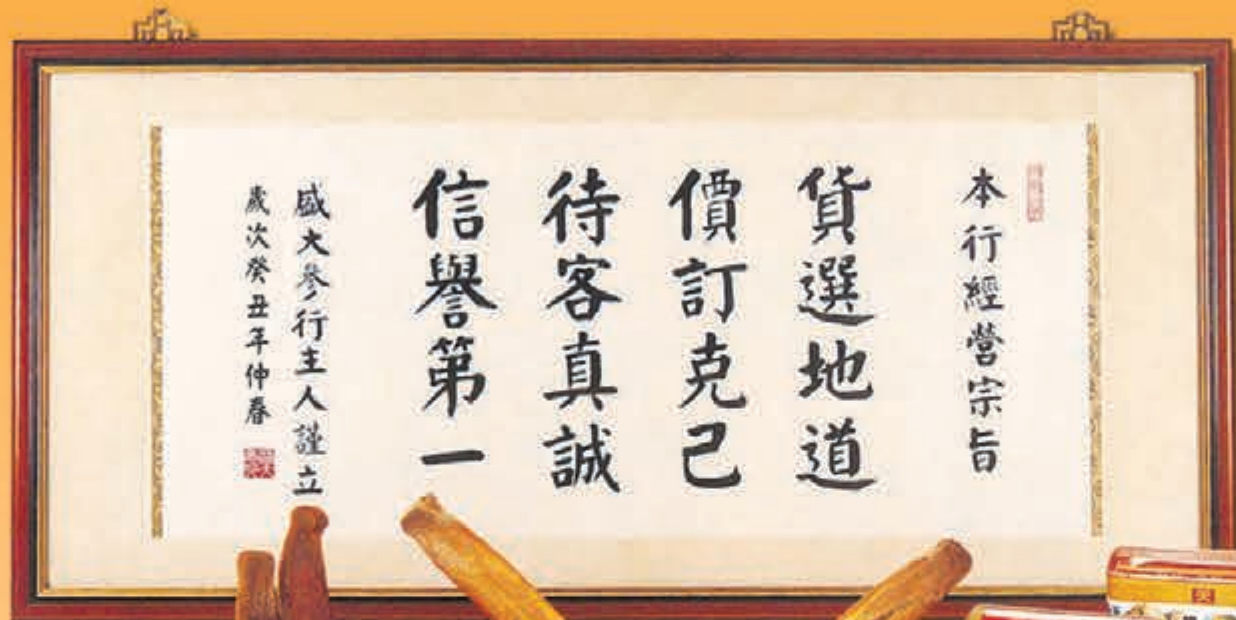 本行經營宗旨
貨選地道
價訂克己
待客真誠
信譽第一
盛大參行主人謹立
歲次癸丑年仲春